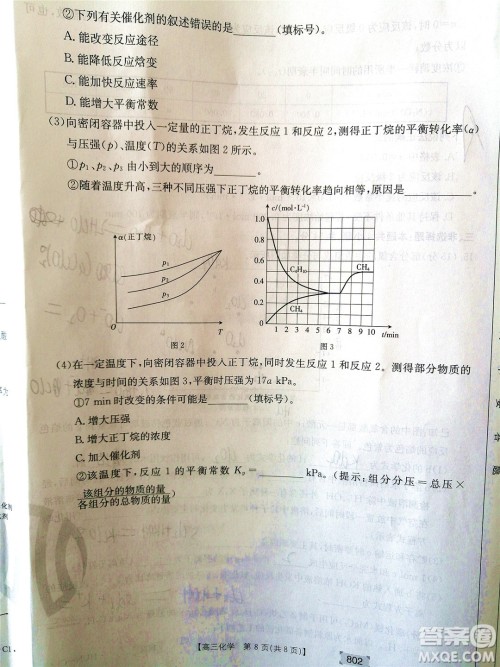 ②下列有关催化剂的叙述错误的是______(填标号)。
A. 能改变反应途径
B. 能降低反应焓变
C. 能加快反应速率
D. 能增大平衡常数
(3)向密闭容器中投入一定量的正丁烷,发生反应1和反应2,测得正丁烷的平衡转化率(α)
与压强(p)、温度(T)的关系如图2所示。
①p₁、p₂、p₃由小到大的顺序为______。
②随着温度升高,三种不同压强下正丁烷的平衡转化率趋向相等,原因是______。
α(正丁烷)
p₁
p₂
p₃
O
T
图2
c/(mol·L⁻¹)
1.0
0.8
0.6
0.4
0.2
0
C₄H₁₀
CH₄
CH₄
1 2 3 4 5 6 7 8 9 10 t/min
图3
(4)在一定温度下,向密闭容器中投入正丁烷,同时发生反应1和反应2。测得部分物质的
浓度与时间的关系如图3,平衡时压强为17a kPa。
①7 min时改变的条件可能是______(填标号)。
A. 增大压强
B. 增大正丁烷的浓度
C. 加入催化剂
②该温度下,反应1的平衡常数Kₚ=______kPa。(提示:组分分压=总压×
该组分的物质的量
各组分总的物质的量)
【高三化学 第8页(共8页)】
802
答案圈